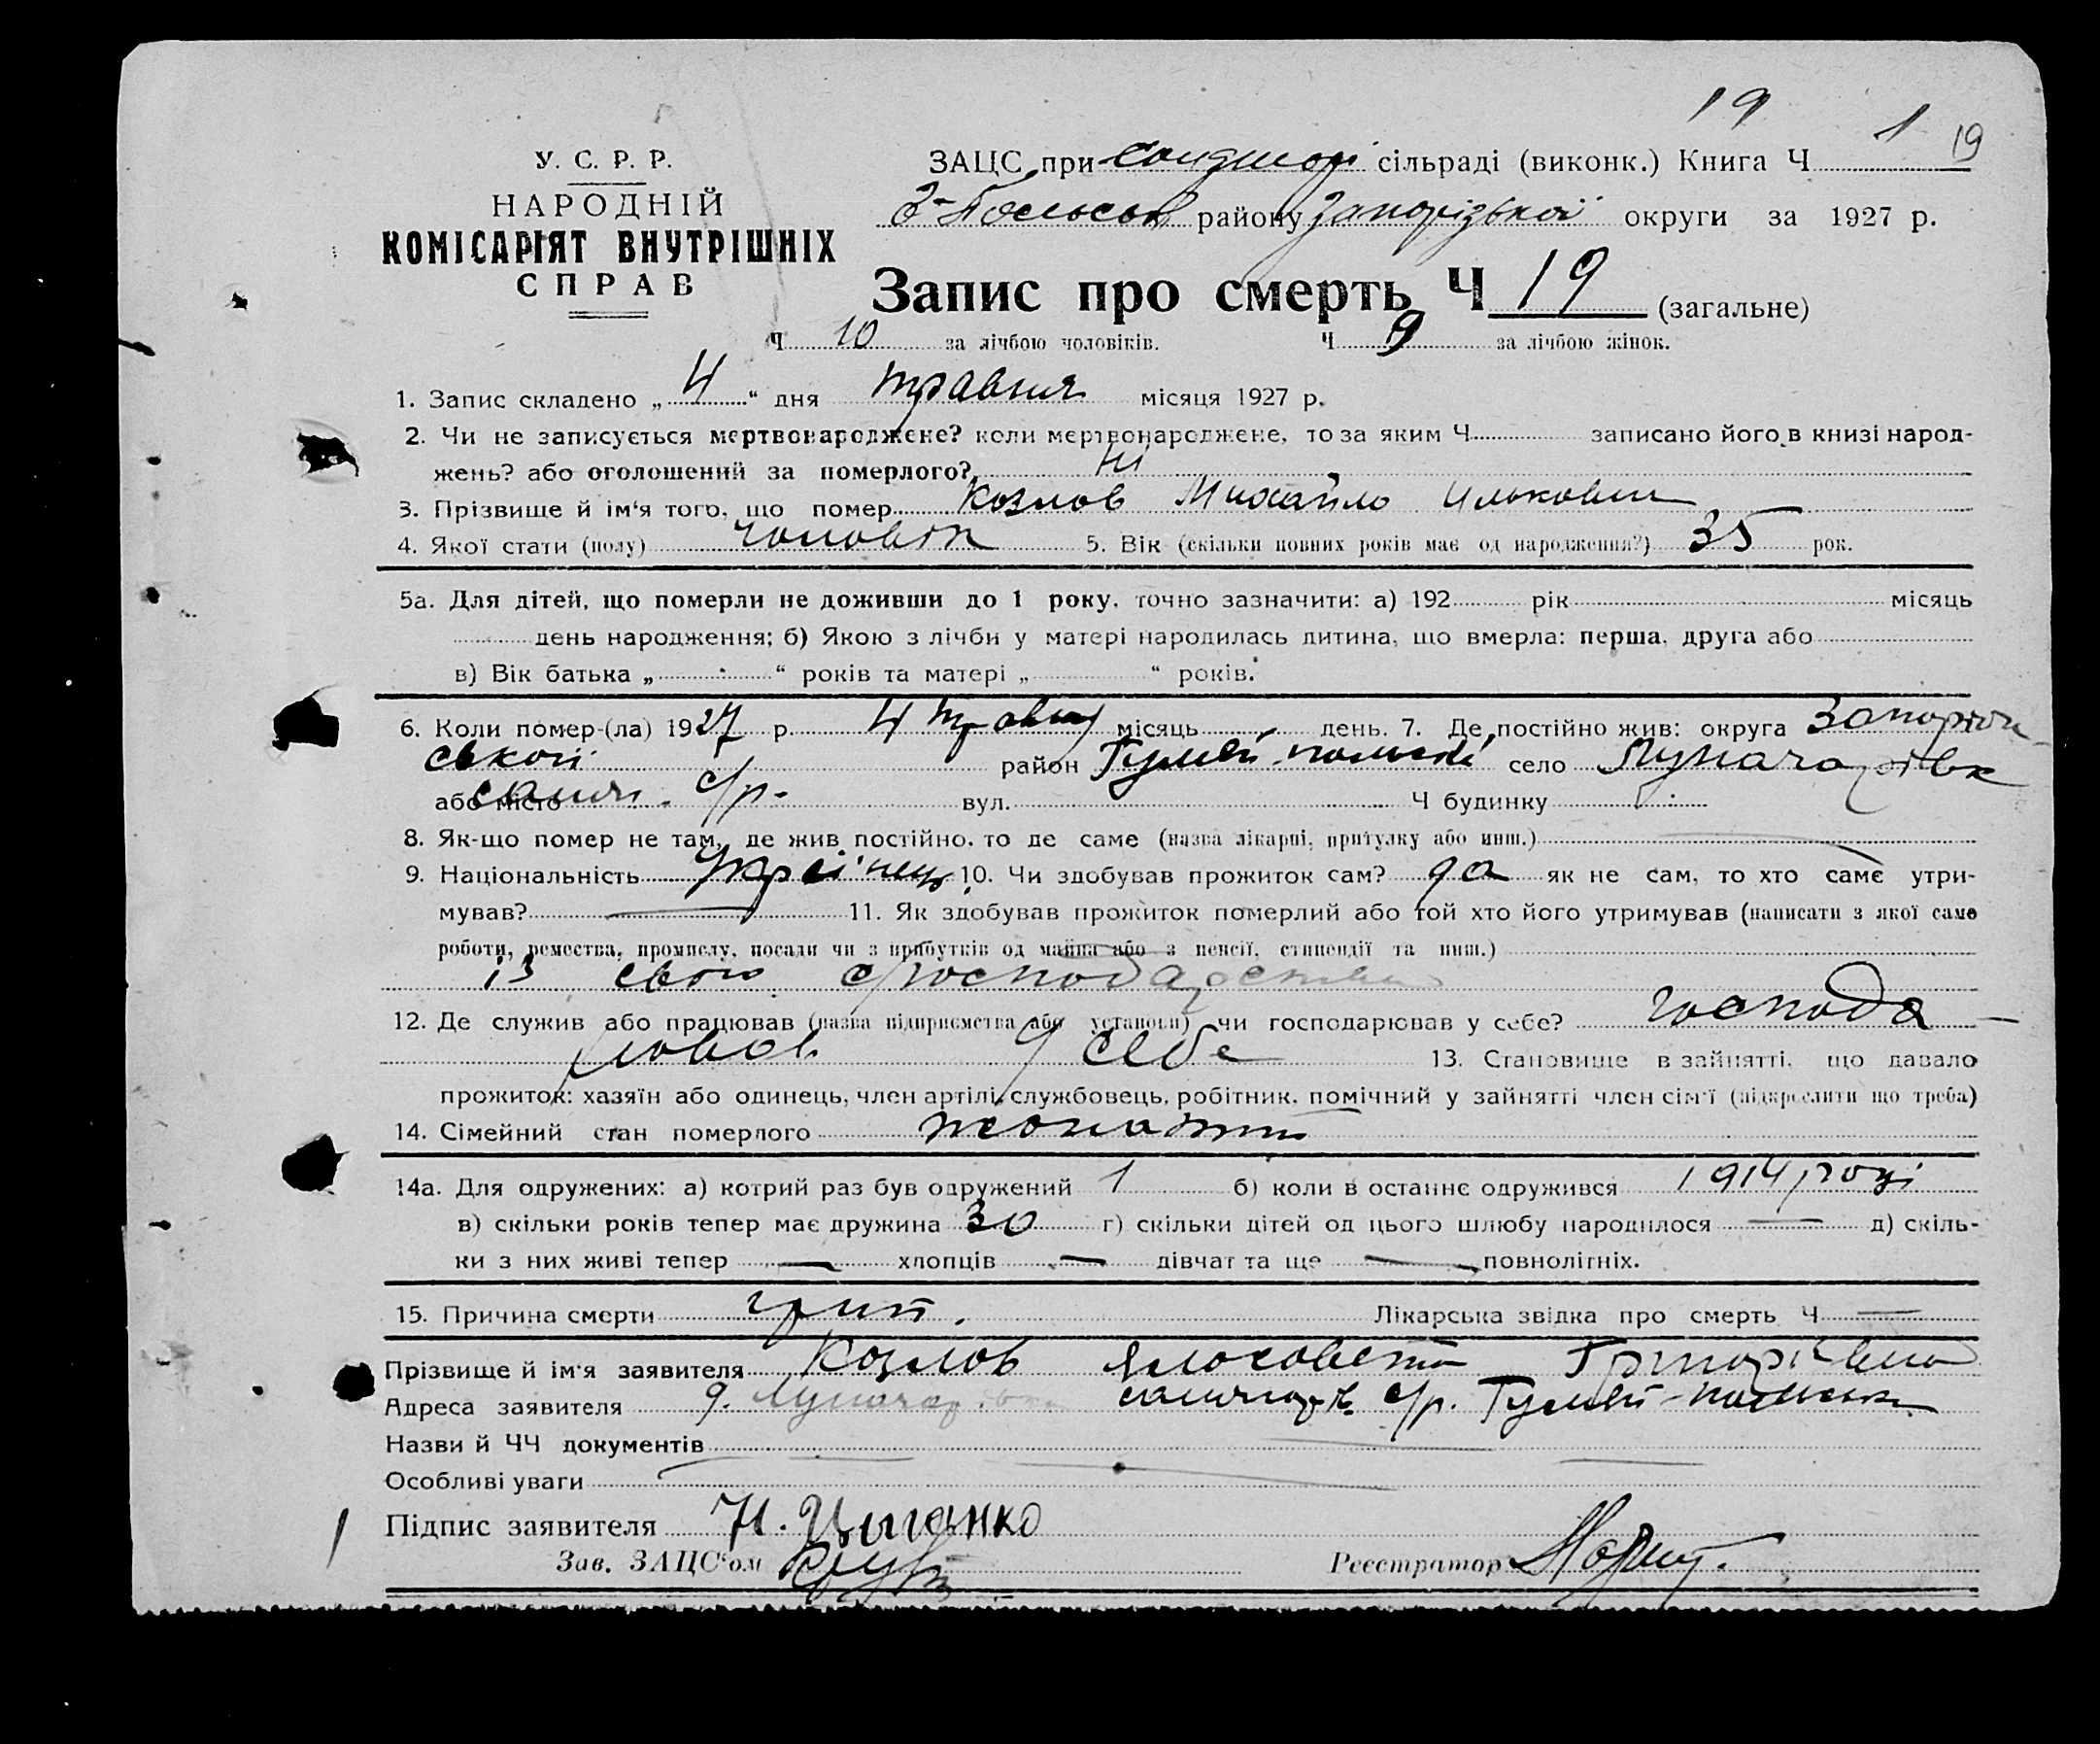 19
У. С. Р. Р.
НАРОДНІЙ
КОМІСАРІЯТ ВНУТРІШНІХ
СПРАВ
ЗАЦС при сільраді (виконк.) Книга Ч 1 19
району Запорізької округи за 1927 р.
Запис про смерть Ч 19 (загальне)
Ч 10 за лічбою чоловіків. Ч 9 за лічбою жінок.
1. Запис складено „ 4 “ дня травня місяця 1927 р.
2. Чи не записується мертвонароджене? коли мертвонароджене, то за яким Ч записано його в книзі народ-
жень? або оголошений за померлого? Ні
3. Прізвище й ім'я того, що помер Козлов Михайло
4. Якої стати (полу) чоловік 5. Вік (скільки повних років має од народження?) 35 рок.
5а. Для дітей, що померли не доживши до 1 року, точно зазначити: а) 192 рік місяць
день народження; б) Якою з лічби у матері народилась дитина, що вмерла: перша, друга або
в) Вік батька „ “ років та матері „ “ років.
6. Коли помер-(ла) 1927 р. 4 травня місяць день. 7. Де постійно жив: округа
район село
або місто с/р. вул. Ч будинку
8. Як-що помер не там, де жив постійно, то де саме (назва лікарні, притулку або инш.)
9. Національність Украінець 10. Чи здобував прожиток сам? да як не сам, то хто саме утри-
мував? 11. Як здобував прожиток померлий або той хто його утримував (написати з якої саме
роботи, ремества, промислу, посади чи з прибутків од майна або з пенсії, стипендії та инш.)
із свого
12. Де служив або працював (назва підприємства або установи) чи господарював у себе? господа
рював у себе 13. Становище в зайнятті, що давало
прожиток: хазяїн або одинець, член артілі, службовець, робітник, помічний у зайнятті член сім'ї (підкреслити що треба)
14. Сімейний стан померлого жонатий
14а. Для одружених: а) котрий раз був одружений 1 б) коли в останнє одружився 1914 році
в) скільки років тепер має дружина 30 г) скільки дітей од цього шлюбу народилося — д) скіль-
ки з них живі тепер — хлопців — дівчат та ще — повнолітніх.
15. Причина смерти грип. Лікарська звідка про смерть Ч —
Прізвище й ім'я заявителя Козлов
Адреса заявителя с/р.
Назви й ЧЧ документів
Особливі уваги
Підпис заявителя Н. Цыганко
Зав. ЗАЦС'ом Реєстратор